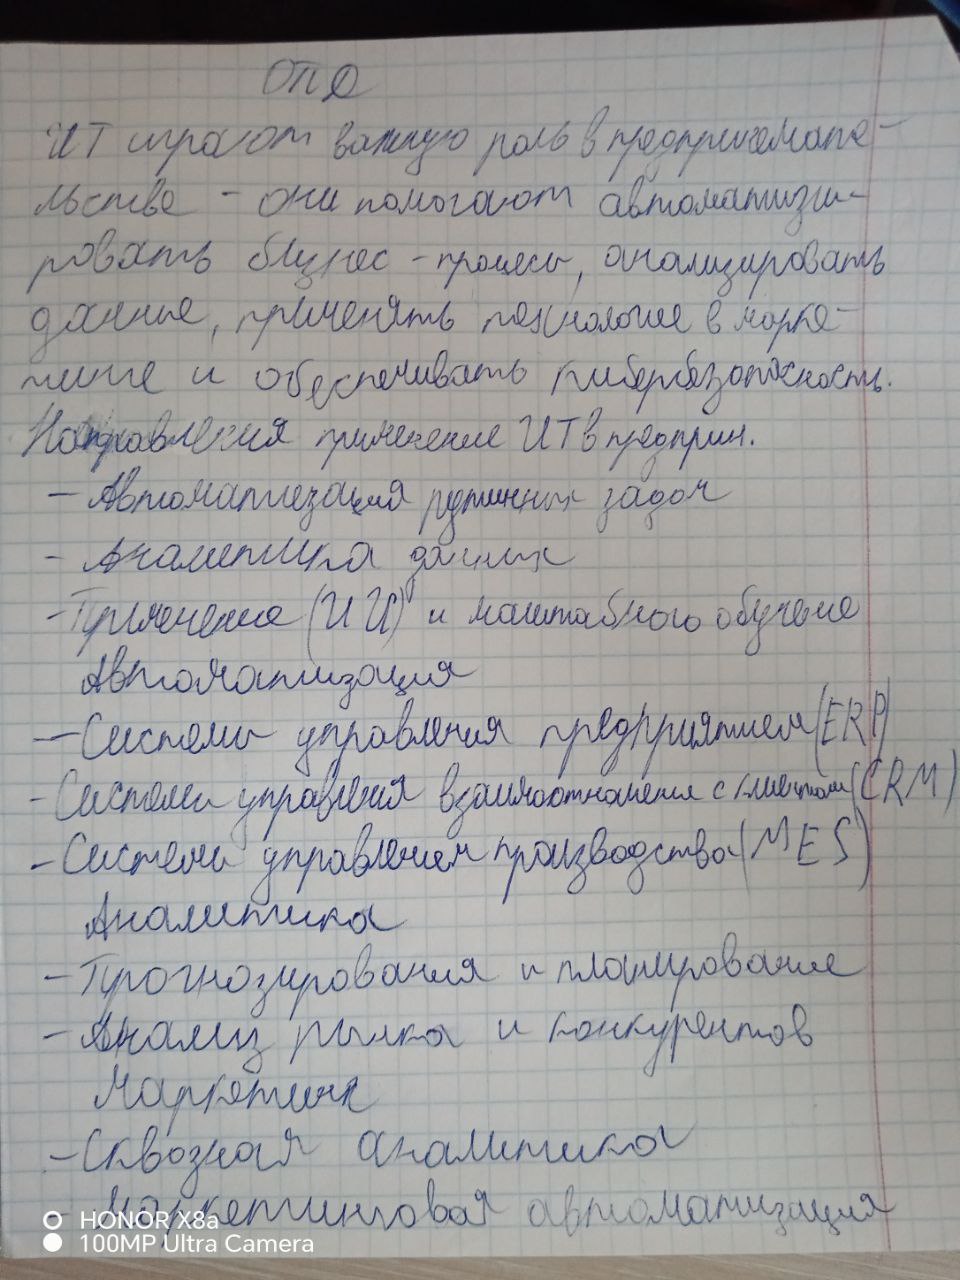 ОПД
ИТ играют важную роль в предпринимате-
льстве - они помогают автоматизи-
ровать бизнес - процесы, анализировать
данные, применять технологие в марке-
тинге и обеспечивать кибербезопасность.
Направления применение ИТ в предприн.
- Автоматизация рутинных задач
- Аналитика данных
- Применение (ИИ) и масштабного обучение
Автоматизация
- Системы управления предприятием (ERP)
- Системы управления взаимоотношения с клиентами (CRM)
- Системы управлением производства (MES)
Аналитика
- Прогнозирования и планирование
- Анализ рынка и конкурентов
Маркетинг
- Сквозная аналитика
- Маркетинговая автоматизация
HONOR X8a
100MP Ultra Camera